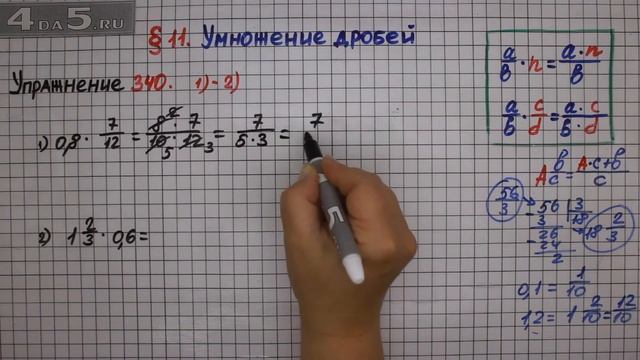 4DA5.RU
§ 11. Умножение дробей
Упражнение 340. 1)-2)
1) 0,8 · 7/12 = 8 · 7/10 · 12 = 7/5·3 = 7
2 5 3
2) 1 2/3 · 0,6 =
a/b · n = a·n/b
a/b · c/d = a·c/b·d
A b/c = A·c+b/c
56/3
56 3
- 3 18
26 18 2/3
- 24
2
0,1 = 1/10
1,2 = 1 2/10 = 12/10